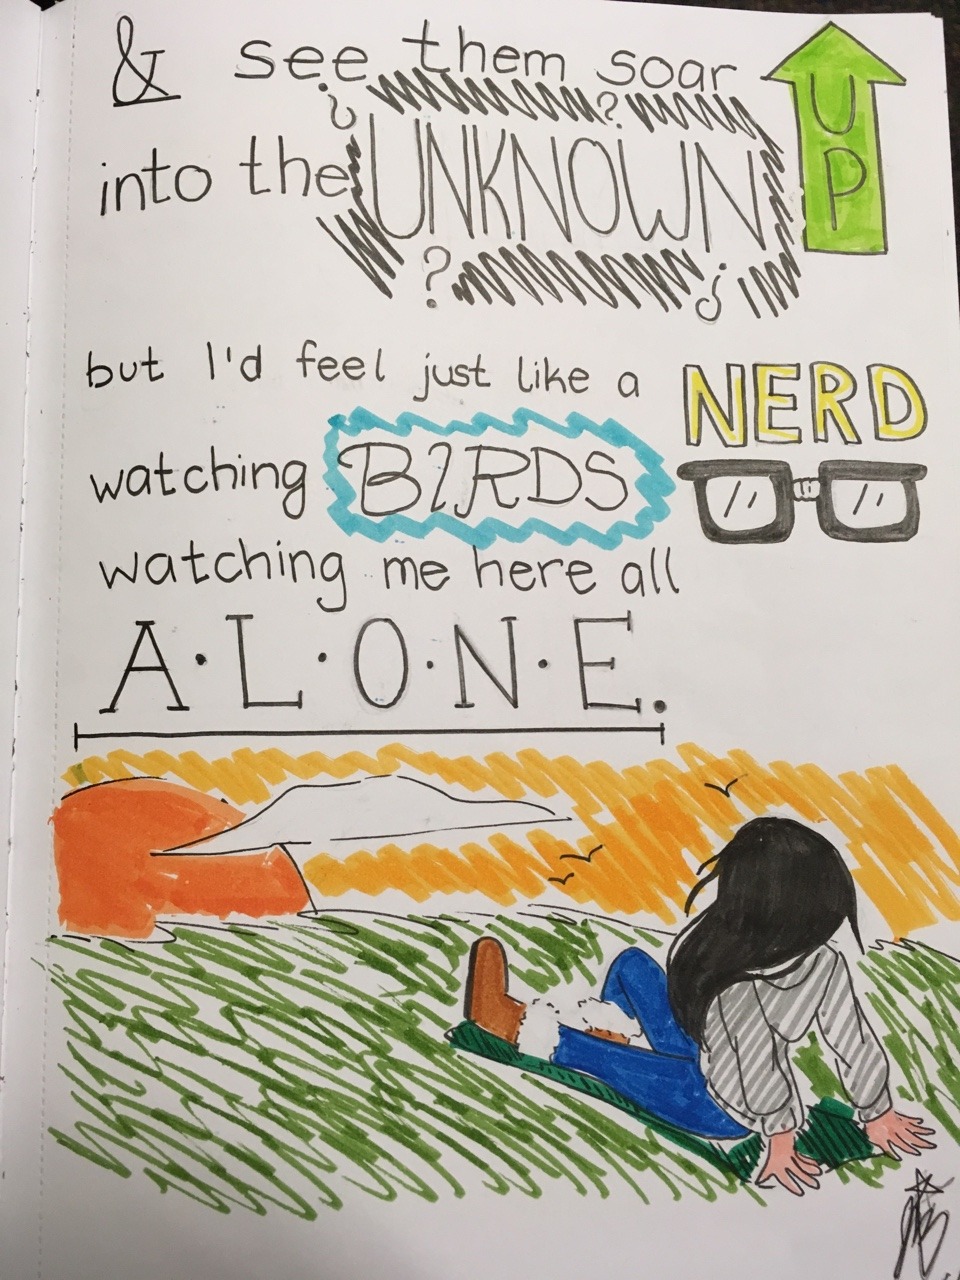 & see them soar UP
¿ ?
into the UNKNOWN
? ¿
but I'd feel just like a NERD
watching BIRDS
watching me here all
A·L·O·N·E.